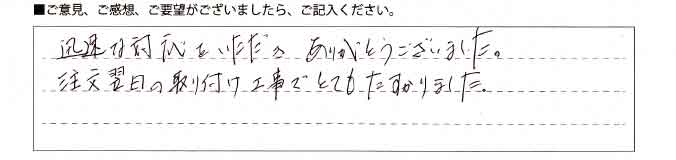 ■ご意見、ご感想、ご要望がございましたら、ご記入ください。
迅速な対応をいただき ありがとうございました。
注文翌日の取り付け工事でとてもたすかりました。